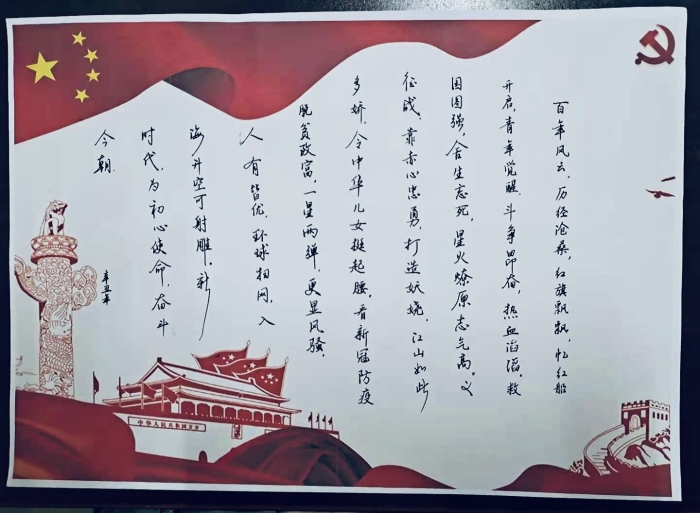 百年风云，历经沧桑，红旗飘飘，忆红船
开启，青年觉醒，斗争昂奋，热血滔滔。救
国图强，舍生忘死，星火燎原志气高。义
征战，靠赤心忠勇，打造妖娆。江山如此
多娇，令中华儿女挺起腰，看新冠防疫
脱贫政富，一星两弹，更显风骚，
人有皆优，环球扫网，入
海升空可射雕。新
时代，为初心使命，奋斗
今朝
辛丑年
中华人民共和国万岁